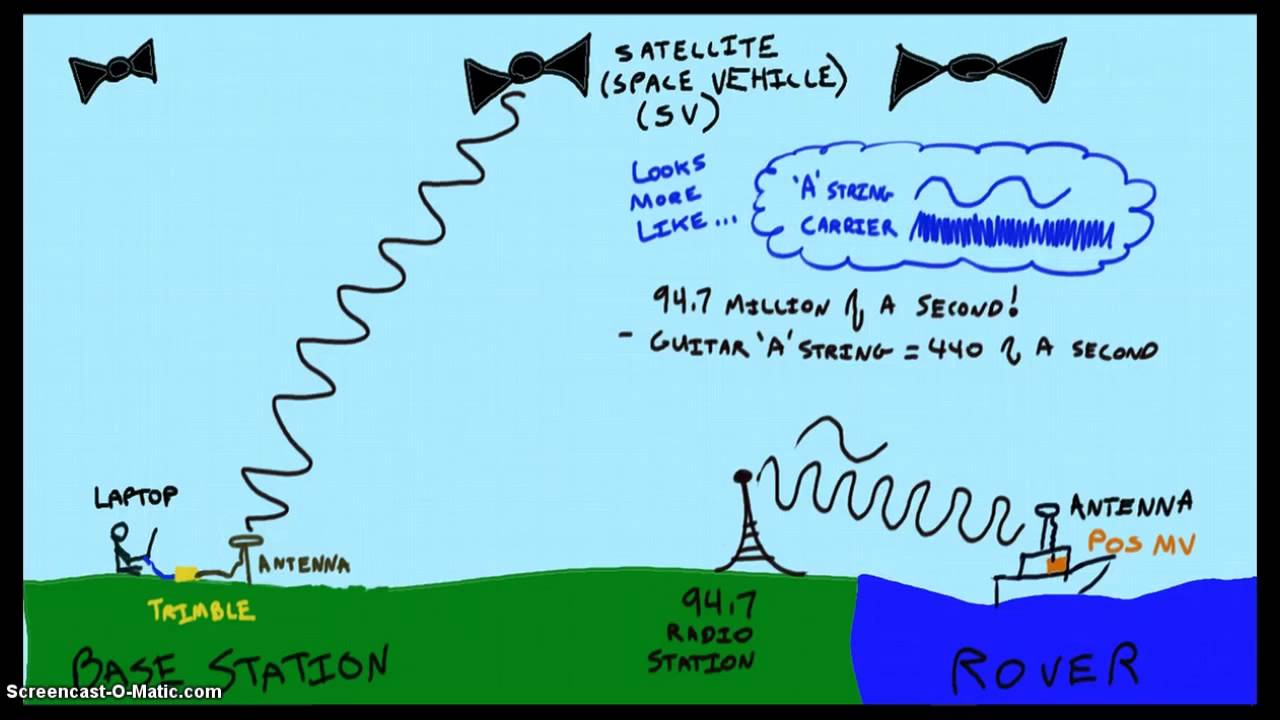 SATELLITE
(SPACE VEHICLE)
(SV)
LOOKS
MORE
LIKE...
'A' STRING
CARRIER
94.7 MILLION A SECOND!
- GUITAR 'A' STRING = 440 A SECOND
LAPTOP
ANTENNA
TRIMBLE
BASE STATION
94.7
RADIO
STATION
ANTENNA
POS MV
ROVER
Screencast-O-Matic.com